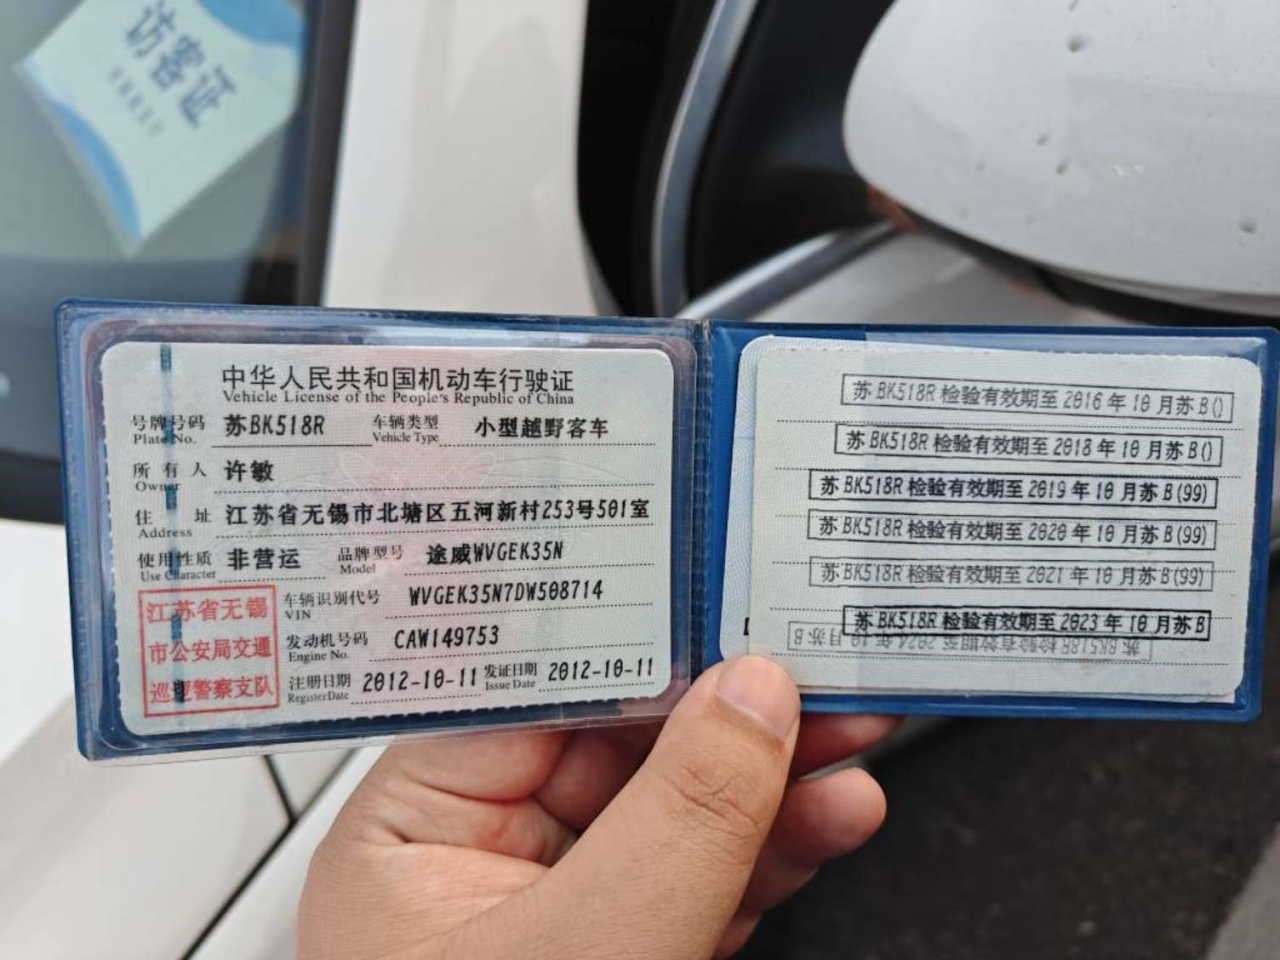 访客证
中华人民共和国机动车行驶证
Vehicle License of the People's Republic of China
号牌号码 苏BK518R 车辆类型 小型越野客车
Plate No. Vehicle Type
所有人 许敏
Owner
住址 江苏省无锡市北塘区五河新村253号501室
Address
使用性质 非营运 品牌型号 途威WVGEK35N
Use Character Model
江苏省无锡
市公安局交通
巡逻警察支队
车辆识别代号 WVGEK35N7DW508714
VIN
发动机号码 CAW149753
Engine No.
注册日期 2012-10-11 发证日期 2012-10-11
Register Date Issue Date
苏BK518R检验有效期至2016年10月苏B()
苏BK518R检验有效期至2018年10月苏B()
苏BK518R检验有效期至2019年10月苏B(99)
苏BK518R检验有效期至2020年10月苏B(99)
苏BK518R检验有效期至2021年10月苏B(99)
苏BK518R检验有效期至2023年10月苏B
苏BK518R检验有效期至2024年10月苏B